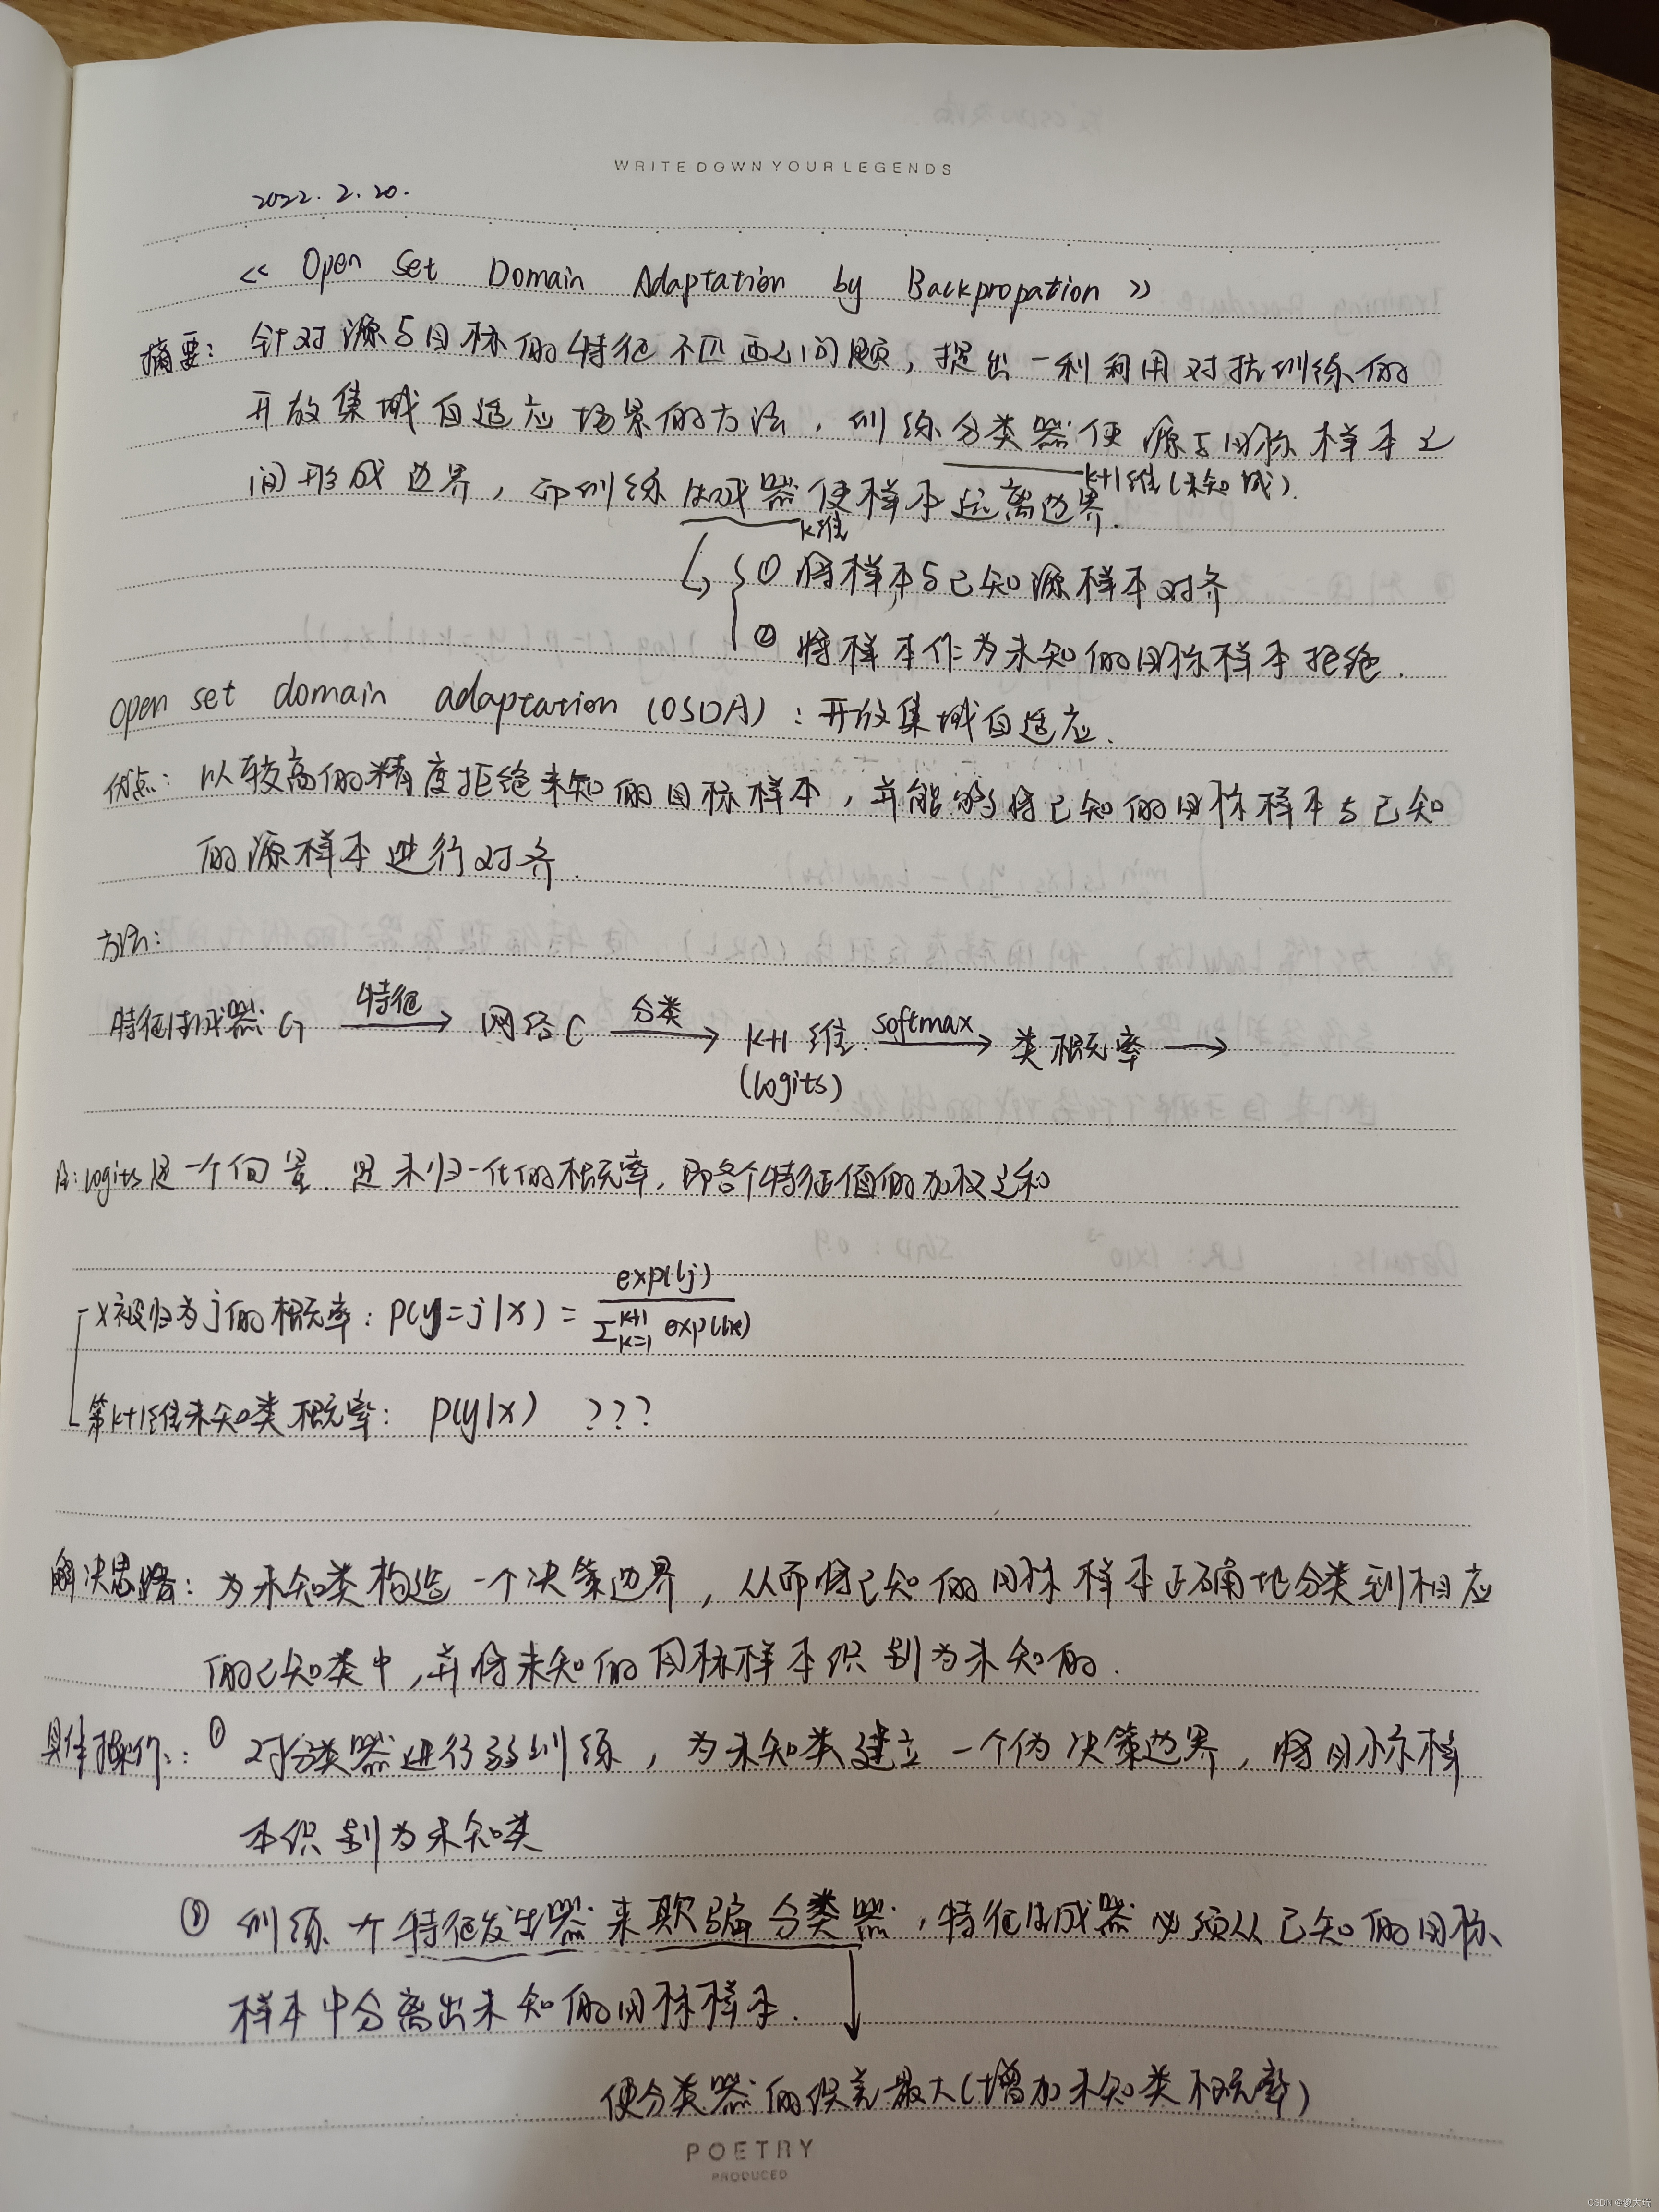 WRITE DOWN YOUR LEGENDS
2022.2.20.
<< Open Set Domain Adaptation by Backpropation >>
摘要: 针对源与目标的特征不匹配问题,提出一种利用对抗训练的
开放集域自适应场景的方法,训练分类器使源与目标样本之
间形成边界,而训练生成器使样本远离边界.
k+1维(未知域).
k维
① 将样本与已知源样本对齐
② 将样本作为未知的目标样本拒绝.
open set domain adaptation (OSDA):开放集域自适应.
优点: 以较高的精度拒绝未知的目标样本,并能够将已知的目标样本与已知
的源样本进行对齐.
方法:
特征生成器G 特征→ 网络C 分类→ k+1维 softmax→ 类概率 →
(logits)
注: logits是一个向量.是未归一化的概率,即各个特征值的加权之和
x被归为j的概率: p(y=j|x) = exp(lj) / Σ_{k=1}^{k+1} exp(lk)
第k+1维未知类概率: p(y|x) ???
解决思路: 为未知类构造一个决策边界,从而将已知的目标样本正确地分类到相应
的已知类中,并将未知的目标样本识别为未知的.
具体操作: ① 对分类器进行弱训练,为未知类建立一个伪决策边界,将目标样
本识别为未知类
② 训练一个特征发生器来欺骗分类器,特征生成器必须从已知的目标
样本中分离出未知的目标样本.
使分类器的误差最大(增加未知类概率)
POETRY
PRODUCED
CSDN @傻大瑶